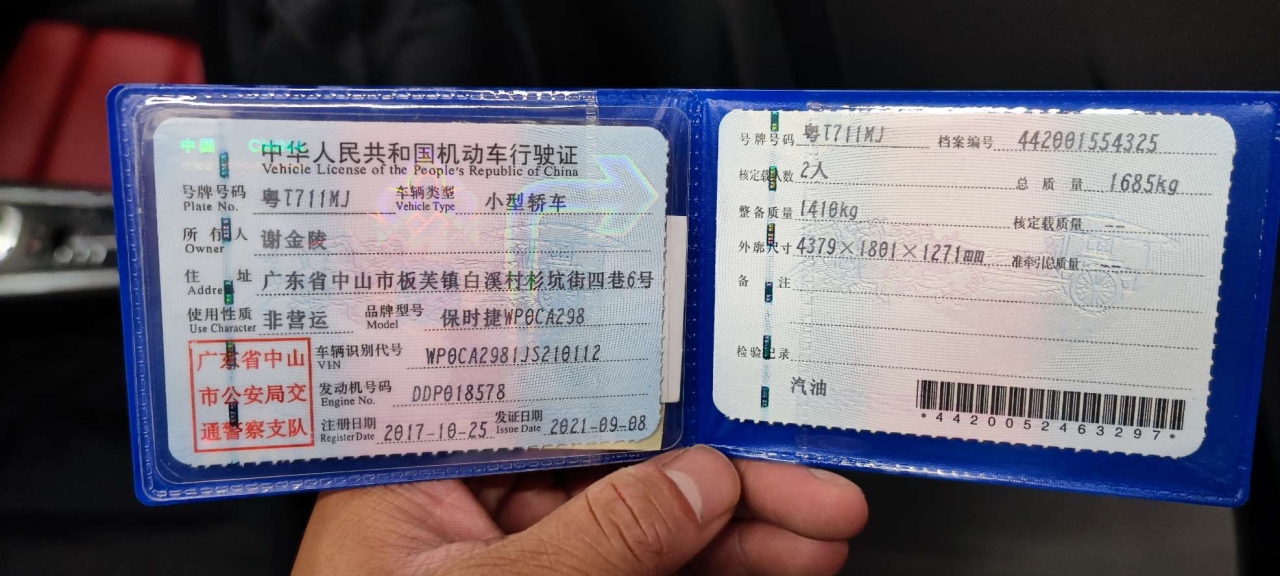 中国 China
中华人民共和国机动车行驶证
Vehicle License of the People's Republic of China
号牌号码 粤T711MJ 车辆类型 小型轿车
Plate No. Vehicle Type
所有人 谢金陵
Owner
住址 广东省中山市板芙镇白溪村杉坑街四巷6号
Address
使用性质 非营运 品牌型号 保时捷WP0CA298
Use Character Model
广东省中山
市公安局交
通警察支队
车辆识别代号 WP0CA2981JS210112
VIN
发动机号码 DDP018578
Engine No.
注册日期 2017-10-25 发证日期 2021-09-08
Register Date Issue Date
号牌号码 粤T711MJ 档案编号 442001554325
核定载人数 2人 总质量 1685kg
整备质量 1410kg 核定载质量 --
外廓尺寸 4379×1801×1271mm 准牵引总质量 --
备注
检验记录
汽油
*4420052463297*